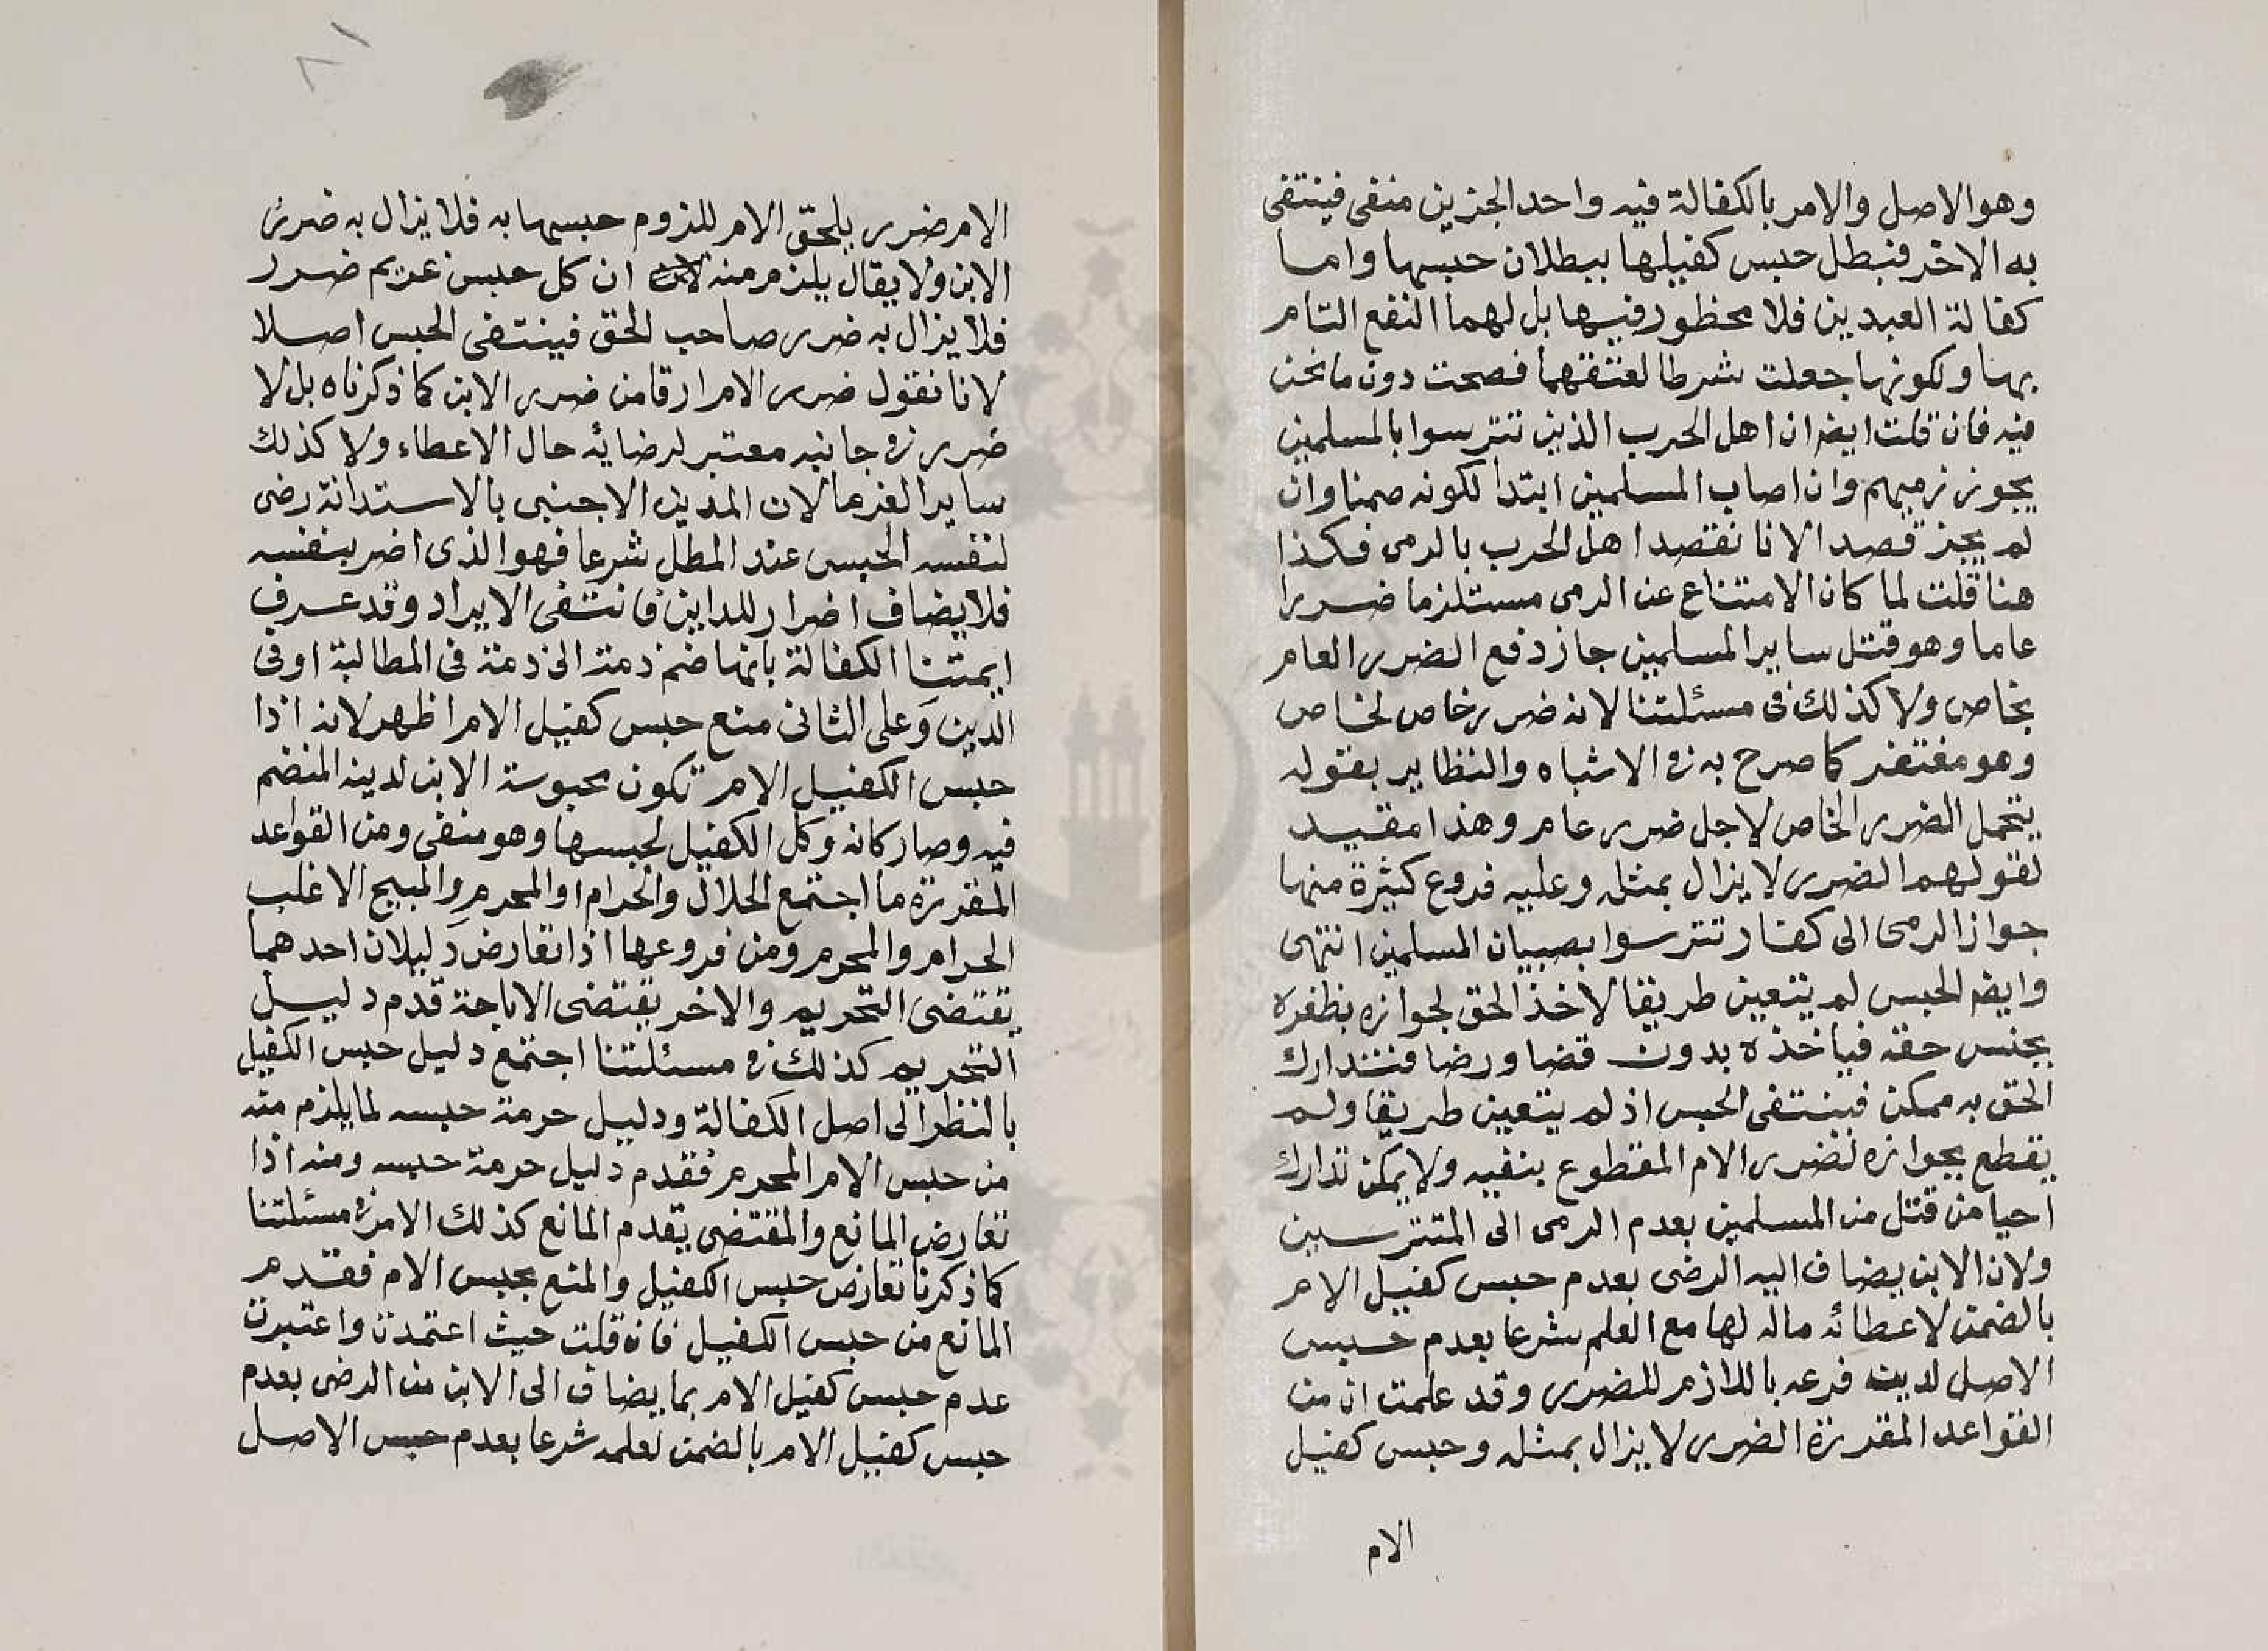 وهو الاصل والامر بالكفالة فيه واحد الجزين منفى فينتفى
به الاخر فبطل حبس كفيلها ببطلان حبسها واما
كفالة العبدين فلا محظور فيها بل لهما النفع التام
بها ولكونها جعلت شرطا لعتقهما فصحت دون ما نحن
فيه فان قلت ايضا ان اهل الحرب الذين تترسوا بالمسلمين
يجوز رميهم وان اصاب المسلمين ابتدا لكونه ضمنا وان
لم يجز قصدا لانا نقصد اهل الحرب بالرمى فكذا
هنا قلت لما كان الامتناع عن الرمى مستلزما ضررا
عاما وهو قتل ساير المسلمين جاز دفع الضرر العام
بخاص ولا كذلك فى مسئلتنا لانه ضرر خاص لخاص
وهو مفتقر كما صرح به فى الاشباه والنظاير بقوله
يتحمل الضرر الخاص لاجل ضرر عام وهذا مقيد
لقولهم الضرر لا يزال بمثله وعليه فروع كثيرة منها
جواز الرمى الى كفار تترسوا بصبيان المسلمين انتهى
وايضا الحبس لم يتعين طريقا لاخذ الحق لجوازه بظفره
بجنس حقه فياخذه بدون قضا ورضا فتدارك
الحق به ممكن فينتفى الحبس اذ لم يتعين طريقا ولم
يقطع بجوازه لضرر الام المقطوع بنفيه ولا يمكن تدارك
احيا من قتل من المسلمين بعدم الرمى الى المتترسين
ولان الابن يضاف اليه الرضى بعدم حبس كفيل الام
بالضمن لاعطائه ماله لها مع العلم شرعا بعدم حبس
الاصل لدين فرعه باللازم للضرر وقد علمت ان من
القواعد المقررة الضرر لا يزال بمثله وحبس كفيل
الام
الام ضرر يلحق الام للزوم حبسها به فلا يزال به ضرر
الابن ولا يقال يلزم منه ان كل حبس غريم ضرر
فلا يزال به ضرر صاحب الحق فينتفى الحبس اصلا
لانا نقول ضرر الام ارقا من ضرر الابن كما ذكرناه بل لا
ضرر فى جانبه معتبر لرضايه حال الاعطاء ولا كذلك
ساير الغرما لان المديل الاجنبى بالاستدانة رضى
لنفسه الحبس عند المطل شرعا فهو الذى اضر بنفسه
فلا يضاف اضرار للداين فانتفى الايراد وقد عرف
ايمتنا الكفالة بانها ضم ذمة الى ذمة فى المطالبة او فى
الدين وعلى الثانى منع حبس كفيل الام اظهر لانه اذا
حبس الكفيل الام تكون محبوسة الابن لدينه المنضم
فيه وصار كانه وكل الكفيل لحبسها وهو منفى ومن القواعد
المقررة ما اجتمع الحلال والحرام او المحرم والمبيح الا غلب
الحرام والمحرم ومن فروعها اذا تعارض دليلان احدهما
يقتضى التحريم والاخر يقتضى الاباحة قدم دليل
التحريم كذلك فى مسئلتنا اجتمع دليل حبس الكفيل
بالنظر الى اصل الكفالة ودليل حرمة حبسه لما يلزم منه
من حبس الام المحرم فقدم دليل حرمة حبسه ومنه اذا
تعارض المانع والمقتضى يقدم المانع كذلك الامر فى مسئلتنا
كما ذكرنا تعارض حبس الكفيل والمنع بحبس الام فقدم
المانع من حبس الكفيل فان قلت حيث اعتمدت واعتبرت
عدم حبس كفيل الام بما يضاف الى الابن من الرضى بعدم
حبس كفيل الام بالضمن لعلمه شرعا بعدم حبس الاصل